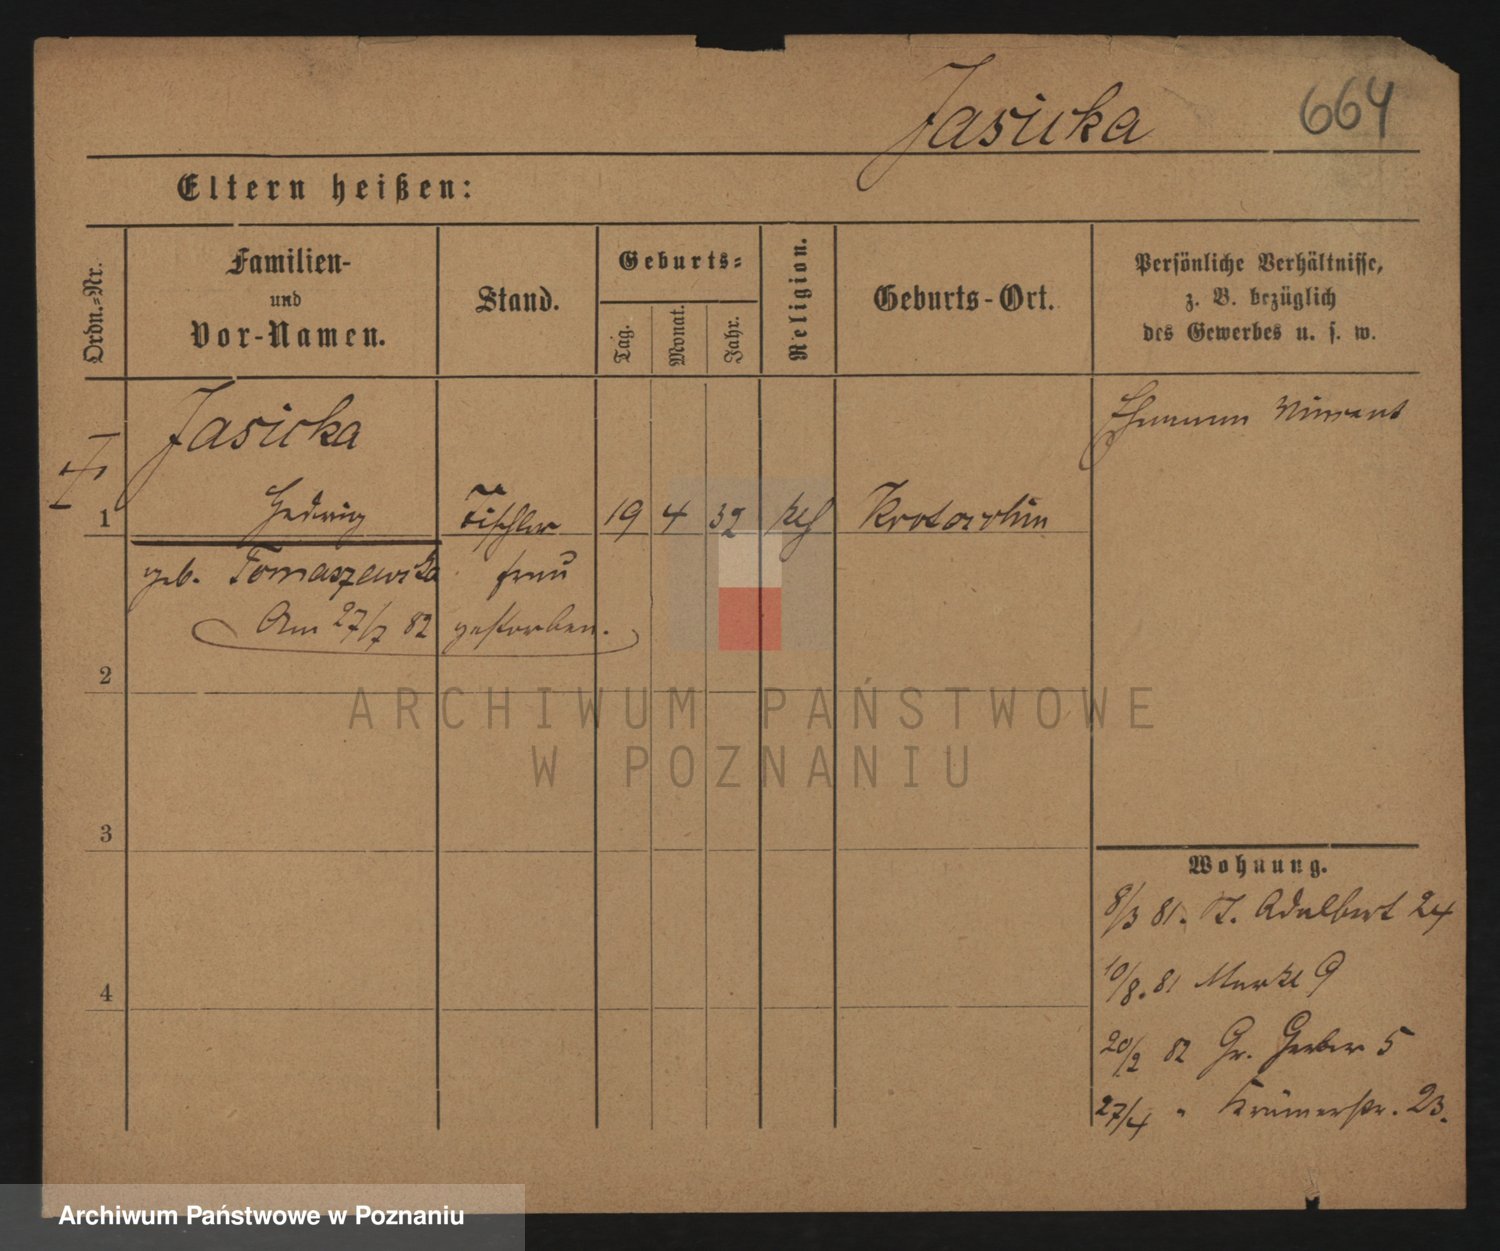 Jasicka 664
Eltern heißen:
Ordn.-Nr.
Familien-
und
Vor-Namen.
Stand.
Geburts-
Tag.
Monat.
Jahr.
Religion.
Geburts-Ort.
Persönliche Verhältnisse,
z. B. bezüglich
des Gewerbes u. s. w.
Jasicka
Ehemann
1 Hedwig Tischler 19 4 32 Krotoschin
geb. Tomaszewska frau
Am 27/7 82 gestorben.
2
ARCHIWUM PAŃSTWOWE
W POZNANIU
3
Wohnung.
8/3 81. St. Adalbert 24
4
10/8. 81 Markt 9
20/2 82 Gr. Gerber 5
27/4 " Krämerstr. 23.
Archiwum Państwowe w Poznaniu